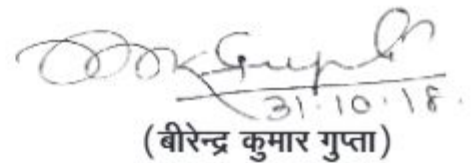 31.10.18.
(बीरेन्द्र कुमार गुप्ता)